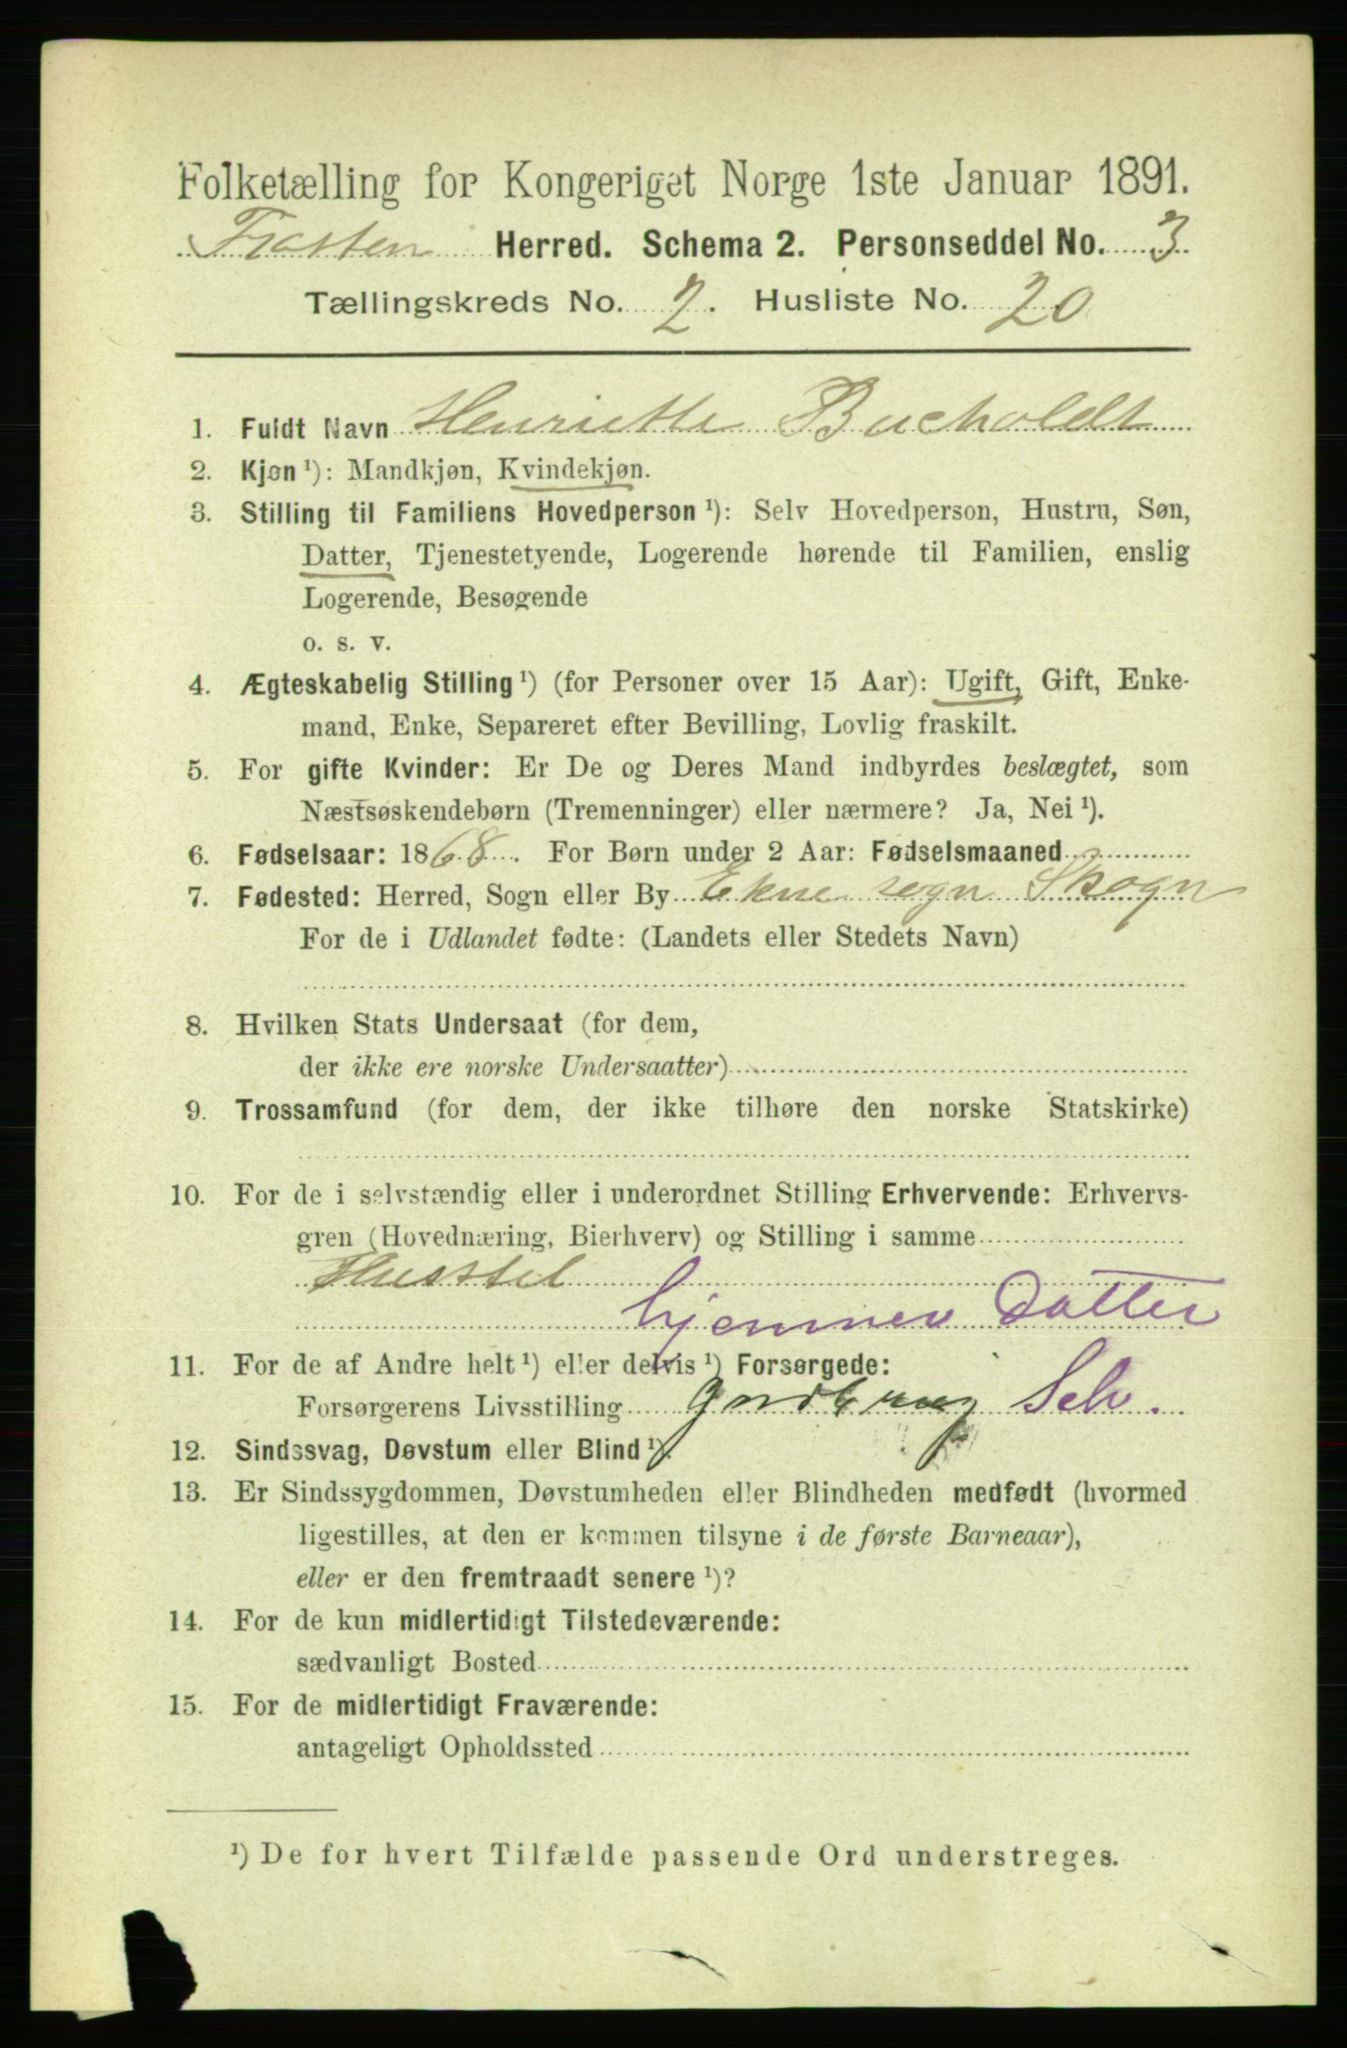 Folketælling for Kongeriget Norge 1ste Januar 1891.
Frosten Herred. Schema 2. Personseddel No. 3
Tællingskreds No. 2. Husliste No. 20
1. Fuldt Navn Henriette Bucholdt
2. Kjøn ¹): Mandkjøn, Kvindekjøn.
3. Stilling til Familiens Hovedperson ¹): Selv Hovedperson, Hustru, Søn,
Datter, Tjenestetyende, Logerende hørende til Familien, enslig
Logerende, Besøgende
o. s. v.
4. Ægteskabelig Stilling ¹) (for Personer over 15 Aar): Ugift, Gift, Enke-
mand, Enke, Separeret efter Bevilling, Lovlig fraskilt.
5. For gifte Kvinder: Er De og Deres Mand indbyrdes beslægtet, som
Næstsøskendebørn (Tremenninger) eller nærmere? Ja, Nei ¹).
6. Fødselsaar: 1868. For Børn under 2 Aar: Fødselsmaaned
7. Fødested: Herred, Sogn eller By Ekne sogn Skogn
For de i Udlandet fødte: (Landets eller Stedets Navn)
8. Hvilken Stats Undersaat (for dem,
der ikke ere norske Undersaatter)
9. Trossamfund (for dem, der ikke tilhøre den norske Statskirke)
10. For de i selvstændig eller i underordnet Stilling Erhvervende: Erhvervs-
gren (Hovednæring, Bierhverv) og Stilling i samme
Husstel
hjemmev Datter
11. For de af Andre helt ¹) eller delvis ¹) Forsørgede:
Forsørgerens Livsstilling Gndbrug Selv.
12. Sindssvag, Døvstum eller Blind ¹).
13. Er Sindssygdommen, Døvstumheden eller Blindheden medfødt (hvormed
ligestilles, at den er kommen tilsyne i de første Barneaar),
eller er den fremtraadt senere ¹)?
14. For de kun midlertidigt Tilstedeværende:
sædvanligt Bosted
15. For de midlertidigt Fraværende:
antageligt Opholdssted
¹) De for hvert Tilfælde passende Ord understreges.